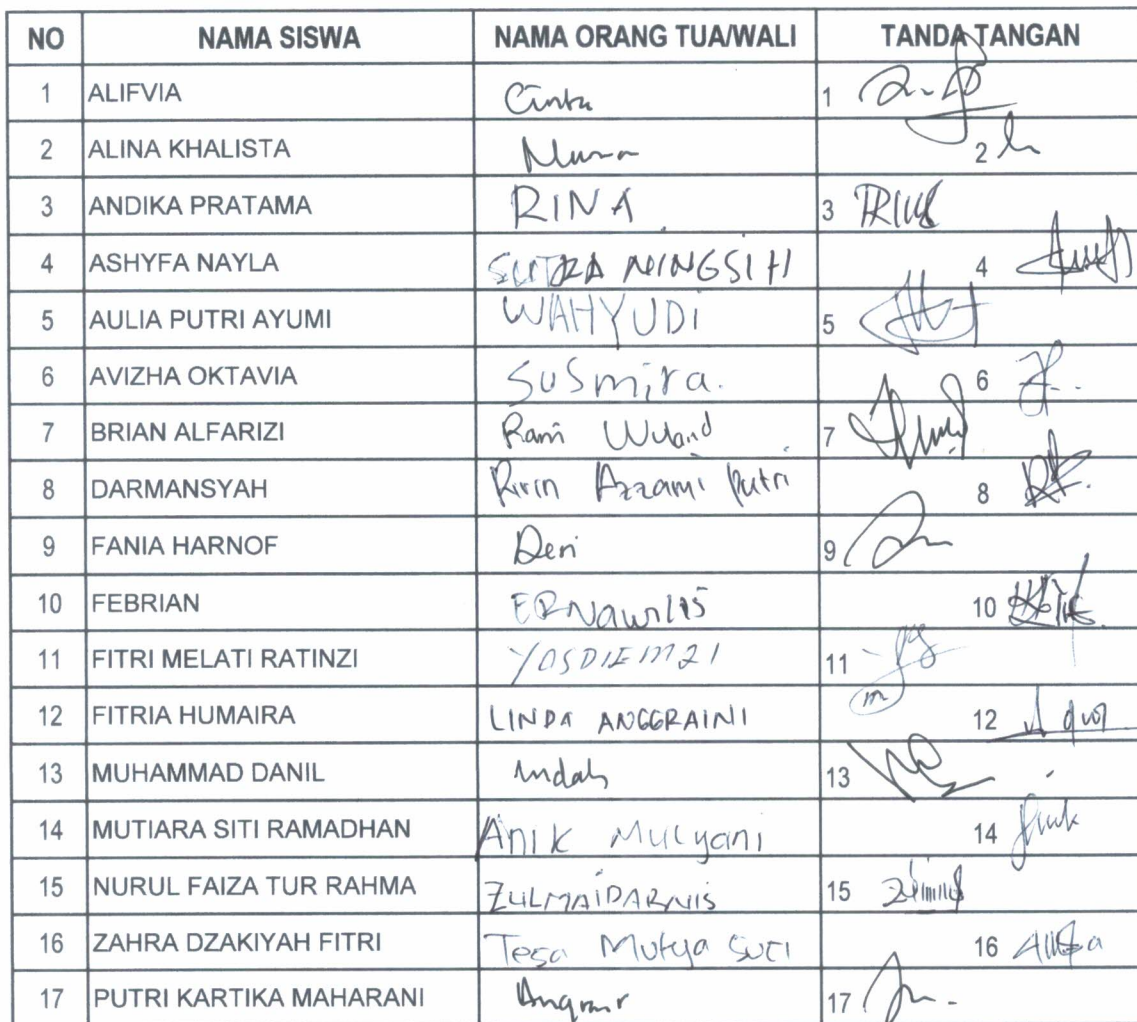 NO NAMA SISWA NAMA ORANG TUA/WALI TANDA TANGAN
1 ALIFVIA Cinta 1
2 ALINA KHALISTA 2
3 ANDIKA PRATAMA RINA 3
4 ASHYFA NAYLA SUTRA NINGSIH 4
5 AULIA PUTRI AYUMI WAHYUDI 5
6 AVIZHA OKTAVIA SuSmira. 6
7 BRIAN ALFARIZI Rami 7
8 DARMANSYAH Ririn Azzami Putri 8
9 FANIA HARNOF Deri 9
10 FEBRIAN ERNawilis 10
11 FITRI MELATI RATINZI YOSDIEMZI 11
12 FITRIA HUMAIRA LINDA ANGGRAINI 12
13 MUHAMMAD DANIL Indah 13
14 MUTIARA SITI RAMADHAN Anik Mulyani 14
15 NURUL FAIZA TUR RAHMA ZULMAIDARNIS 15
16 ZAHRA DZAKIYAH FITRI Tesa Mutya Suci 16
17 PUTRI KARTIKA MAHARANI 17